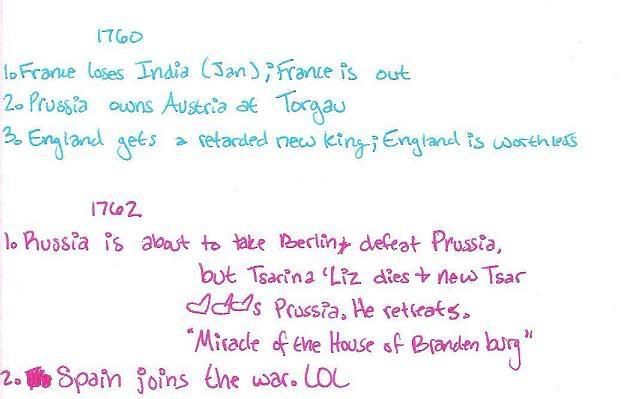 1760
1. France loses India (Jan); France is out
2. Prussia owns Austria at Torgau
3. England gets a retarded new king; England is worthless
1762
1. Russia is about to take Berlin + defeat Prussia,
but Tsarina 'Liz dies + new Tsar
♡♡♡s Prussia. He retreats.
"Miracle of the House of Brandenburg"
2. Spain joins the war. LOL